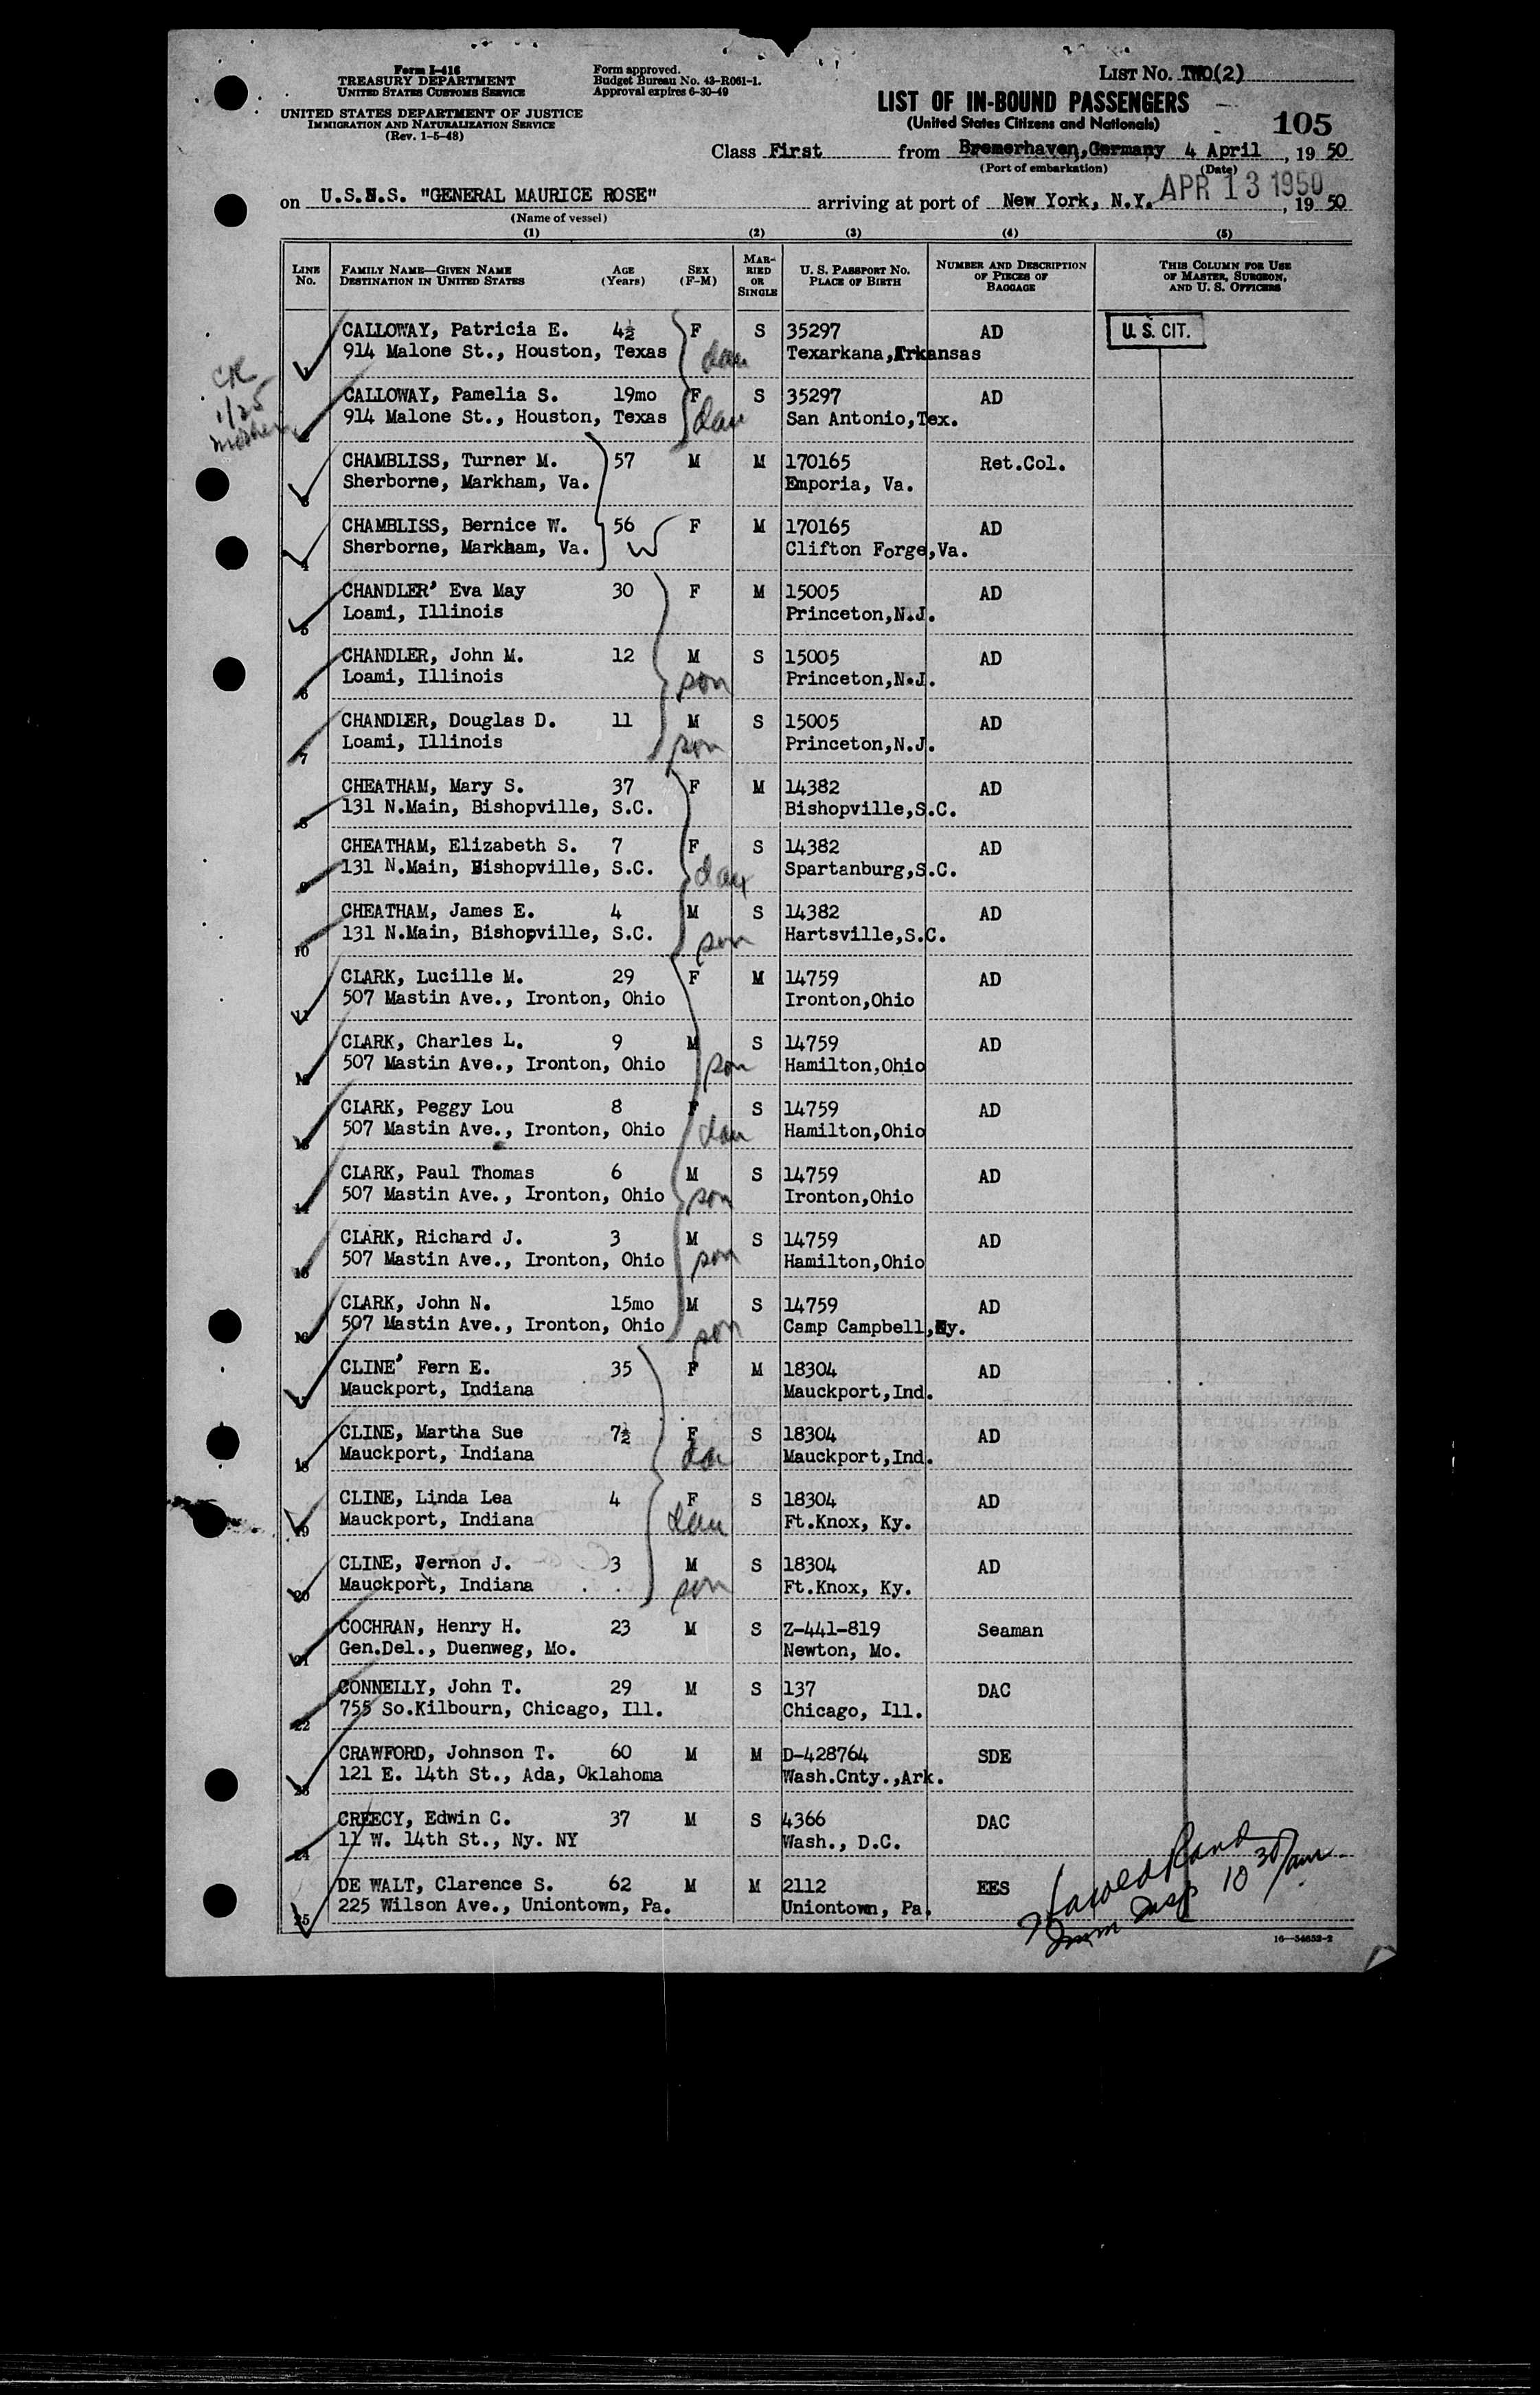 Form I-416
TREASURY DEPARTMENT
UNITED STATES CUSTOMS SERVICE
UNITED STATES DEPARTMENT OF JUSTICE
IMMIGRATION AND NATURALIZATION SERVICE
(Rev. 1-5-48)
Form approved.
Budget Bureau No. 43-R061-1.
Approval expires 6-30-49
LIST No. TWO(2)
LIST OF IN-BOUND PASSENGERS
(United States Citizens and Nationals)
105
Class First from Bremerhaven,Germany 4 April, 19 50
(Port of embarkation) (Date)
on U.S.N.S. "GENERAL MAURICE ROSE" arriving at port of New York, N.Y. APR 13 1950, 19 50
(Name of vessel)
(1) (2) (3) (4) (5)
LINE No. FAMILY NAME—GIVEN NAME DESTINATION IN UNITED STATES AGE (Years) SEX (F-M) MARRIED OR SINGLE U. S. PASSPORT No. PLACE OF BIRTH NUMBER AND DESCRIPTION OF PIECES OF BAGGAGE THIS COLUMN FOR USE OF MASTER, SURGEON, AND U. S. OFFICERS
CALLOWAY, Patricia E. 4½ F S 35297 AD U. S. CIT.
1 914 Malone St., Houston, Texas dau Texarkana,Arkansas
CALLOWAY, Pamelia S. 19mo F S 35297 AD
2 914 Malone St., Houston, Texas dau San Antonio,Tex.
CHAMBLISS, Turner M. 57 M M 170165 Ret.Col.
3 Sherborne, Markham, Va. Emporia, Va.
CHAMBLISS, Bernice W. 56 F M 170165 AD
4 Sherborne, Markham, Va. W Clifton Forge,Va.
CHANDLER' Eva May 30 F M 15005 AD
5 Loami, Illinois Princeton,N.J.
CHANDLER, John M. 12 M S 15005 AD
6 Loami, Illinois son Princeton,N.J.
CHANDLER, Douglas D. 11 M S 15005 AD
7 Loami, Illinois son Princeton,N.J.
CHEATHAM, Mary S. 37 F M 14382 AD
8 131 N.Main, Bishopville, S.C. Bishopville,S.C.
CHEATHAM, Elizabeth S. 7 F S 14382 AD
9 131 N.Main, Bishopville, S.C. dau Spartanburg,S.C.
CHEATHAM, James E. 4 M S 14382 AD
10 131 N.Main, Bishopville, S.C. son Hartsville,S.C.
CLARK, Lucille M. 29 F M 14759 AD
11 507 Mastin Ave., Ironton, Ohio Ironton,Ohio
CLARK, Charles L. 9 M S 14759 AD
12 507 Mastin Ave., Ironton, Ohio son Hamilton,Ohio
CLARK, Peggy Lou 8 F S 14759 AD
13 507 Mastin Ave., Ironton, Ohio dau Hamilton,Ohio
CLARK, Paul Thomas 6 M S 14759 AD
14 507 Mastin Ave., Ironton, Ohio son Ironton,Ohio
CLARK, Richard J. 3 M S 14759 AD
15 507 Mastin Ave., Ironton, Ohio son Hamilton,Ohio
CLARK, John N. 15mo M S 14759 AD
16 507 Mastin Ave., Ironton, Ohio son Camp Campbell,Ky.
CLINE' Fern E. 35 F M 18304 AD
17 Mauckport, Indiana Mauckport,Ind.
CLINE, Martha Sue 7½ F S 18304 AD
18 Mauckport, Indiana dau Mauckport,Ind.
CLINE, Linda Lea 4 F S 18304 AD
19 Mauckport, Indiana dau Ft.Knox, Ky.
CLINE, Vernon J. 3 M S 18304 AD
20 Mauckport, Indiana son Ft.Knox, Ky.
COCHRAN, Henry H. 23 M S Z-441-819 Seaman
21 Gen.Del., Duenweg, Mo. Newton, Mo.
CONNELLY, John T. 29 M S 137 DAC
22 755 So.Kilbourn, Chicago, Ill. Chicago, Ill.
CRAWFORD, Johnson T. 60 M M D-428764 SDE
23 121 E. 14th St., Ada, Oklahoma Wash.Cnty.,Ark.
CREECY, Edwin C. 37 M S 4366 DAC
24 11 W. 14th St., Ny. NY Wash., D.C.
DE WALT, Clarence S. 62 M M 2112 EES
25 225 Wilson Ave., Uniontown, Pa. Uniontown, Pa.
Imm Insp 10 30/am
16—54652-2